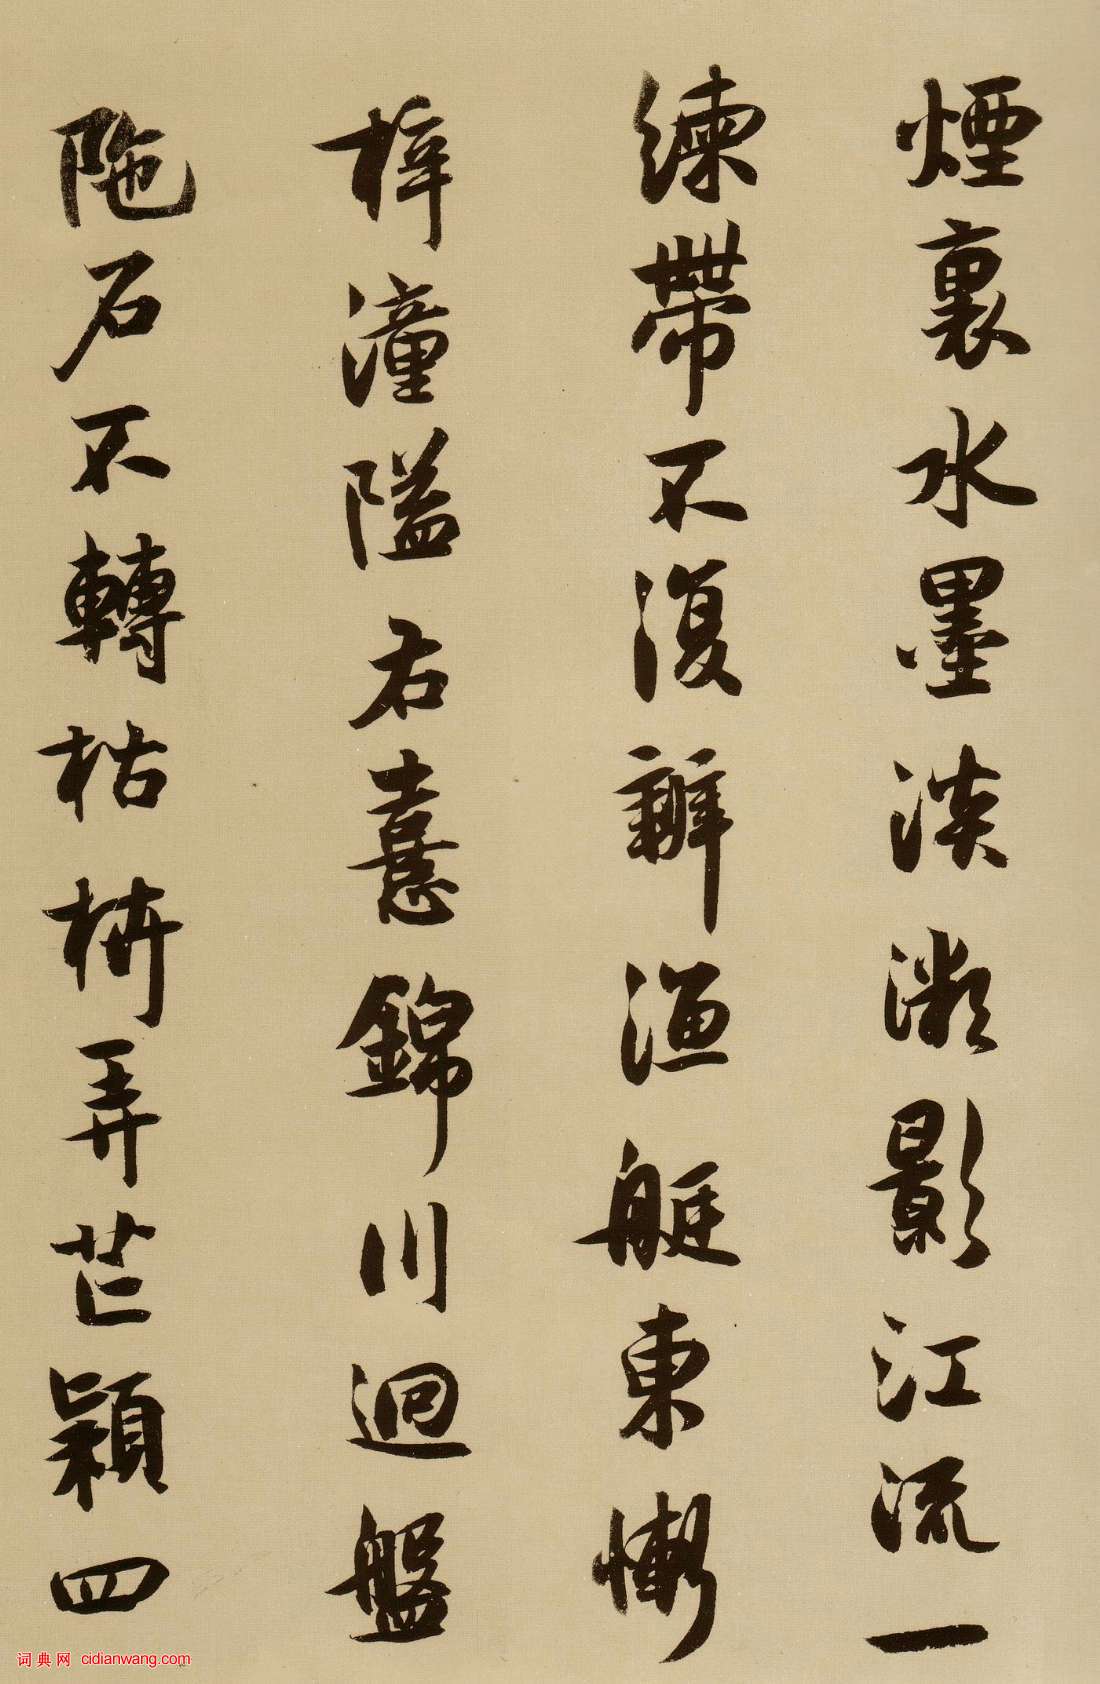 煙裏水墨淡濺影江流一
練帶不復辦漁艇東慚
梓潼隘右憙錦川迴盤
陁石不轉枯栟弄芒穎四
词典网 cidianwang.com